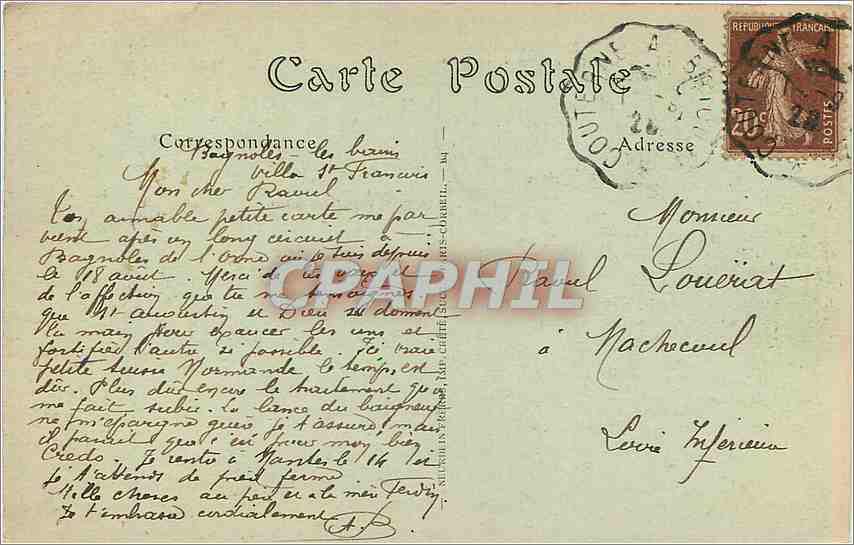 Carte Postale
Correspondance
Adresse
RÉPUBLIQUE FRANÇAISE
20c
POSTES
COUTERNE A BRIOUZE
Bagnoles - les bains
Villa St Francois
Mon cher Raoul
Ton aimable petite carte me par
vient après un long circuit à
Bagnoles de l'Orne où je suis depuis
le 18 août. Merci de
de l'affection que tu me témoignes
que St Augustin et Dieu se donnent
la main pour exaucer les uns et
fortifier l'autre si possible. Ici vraie
petite suisse Normande le temps est
dur. Plus dur encore le traitement qu'on
me fait subir. La lance du baigneur
ne m'épargne guère je t'assure mais
il parait que c'est pour mon bien
Credo. Je rentre à Nantes le 14 et
je t'attends de pied ferme.
Mille choses au père et à la mère
Je t'embrasse cordialement
A. B
Monsieur
Raoul Louërat
à Machecoul
Loire Inférieure
NEURDEIN FRÈRES, IMP. CRÉTÉ, SUCC. PARIS-CORBEIL.
CPAPHIL